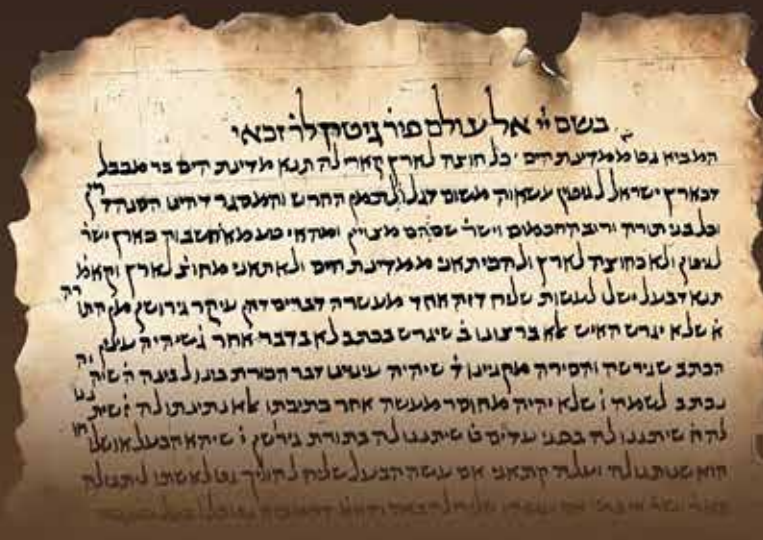 בשם יי אל עולם פור גיטין לר זכאי
המביא גט ממדינת הים כל חוצה לארץ קארי לה תנא מדינת הים בר מבבל
דכארץ ישראל לגיטין עשאוה משום דגלו לתמן החרש והמסגר דהינו הסנהד
וכל בני תורה ורוב החכמים ויש שם הם מצויין ומהאי טע מא חשבוה כארץ ישר
לגיטין ולא כחוצה לארץ ולהכי תאני ממדינת הים ולא תאני מחוצ לארץ וקאמ
תנא דבעל יש לו לעשות שליח דזה אחד מעשרה דברים דהן עיקר גירושין מן התו
א שלא יגרש האיש אלא ברצונו ב שיגרש בכתב לא בדבר אחר ג שיהיה ענין
הכתב שגירשה והסירה מקנינו ד שיהיה עניינו דבר הכורת בינו לבינה ה שיה
נכתב לשמה ו שלא יהיה מחוסר מעשה אחר כתיבתו אלא נתינתו לה ז שית
לה ח שיתננו לה בפני עדים ט שיתננו לה בתורת גירושין י שיהא הבעל או שלו
הוא שנותנו לה ועלה קתאני אם עשה הבעל שליח להוליך גט לאשתו ליתנו לה